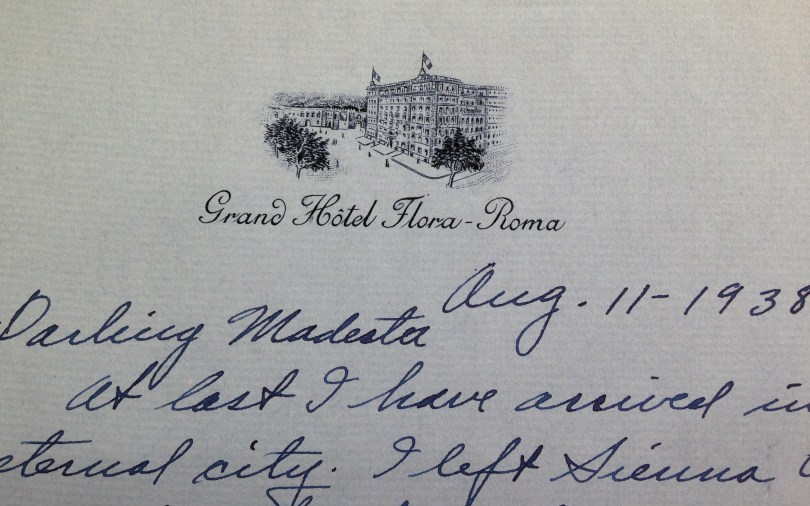 Grand Hôtel Flora - Roma
Aug. 11-1938
Darling Modesta
At last I have arrived in
eternal city. I left Sienna